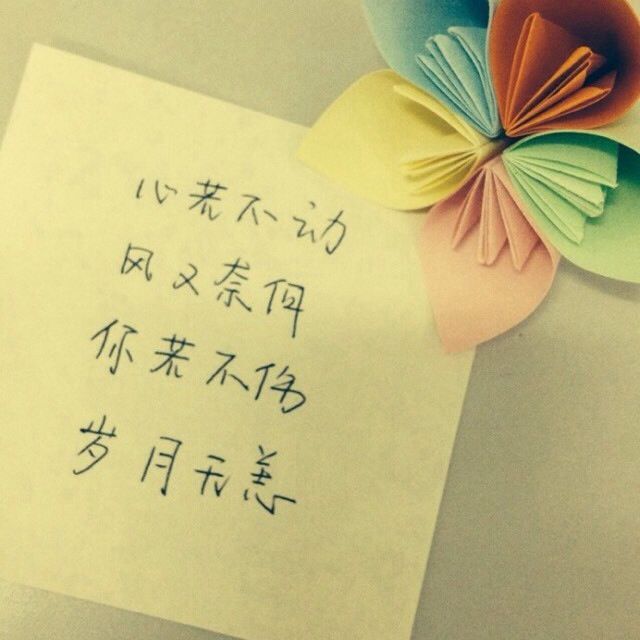 心若不动
风又奈何
你若不伤
岁月无恙